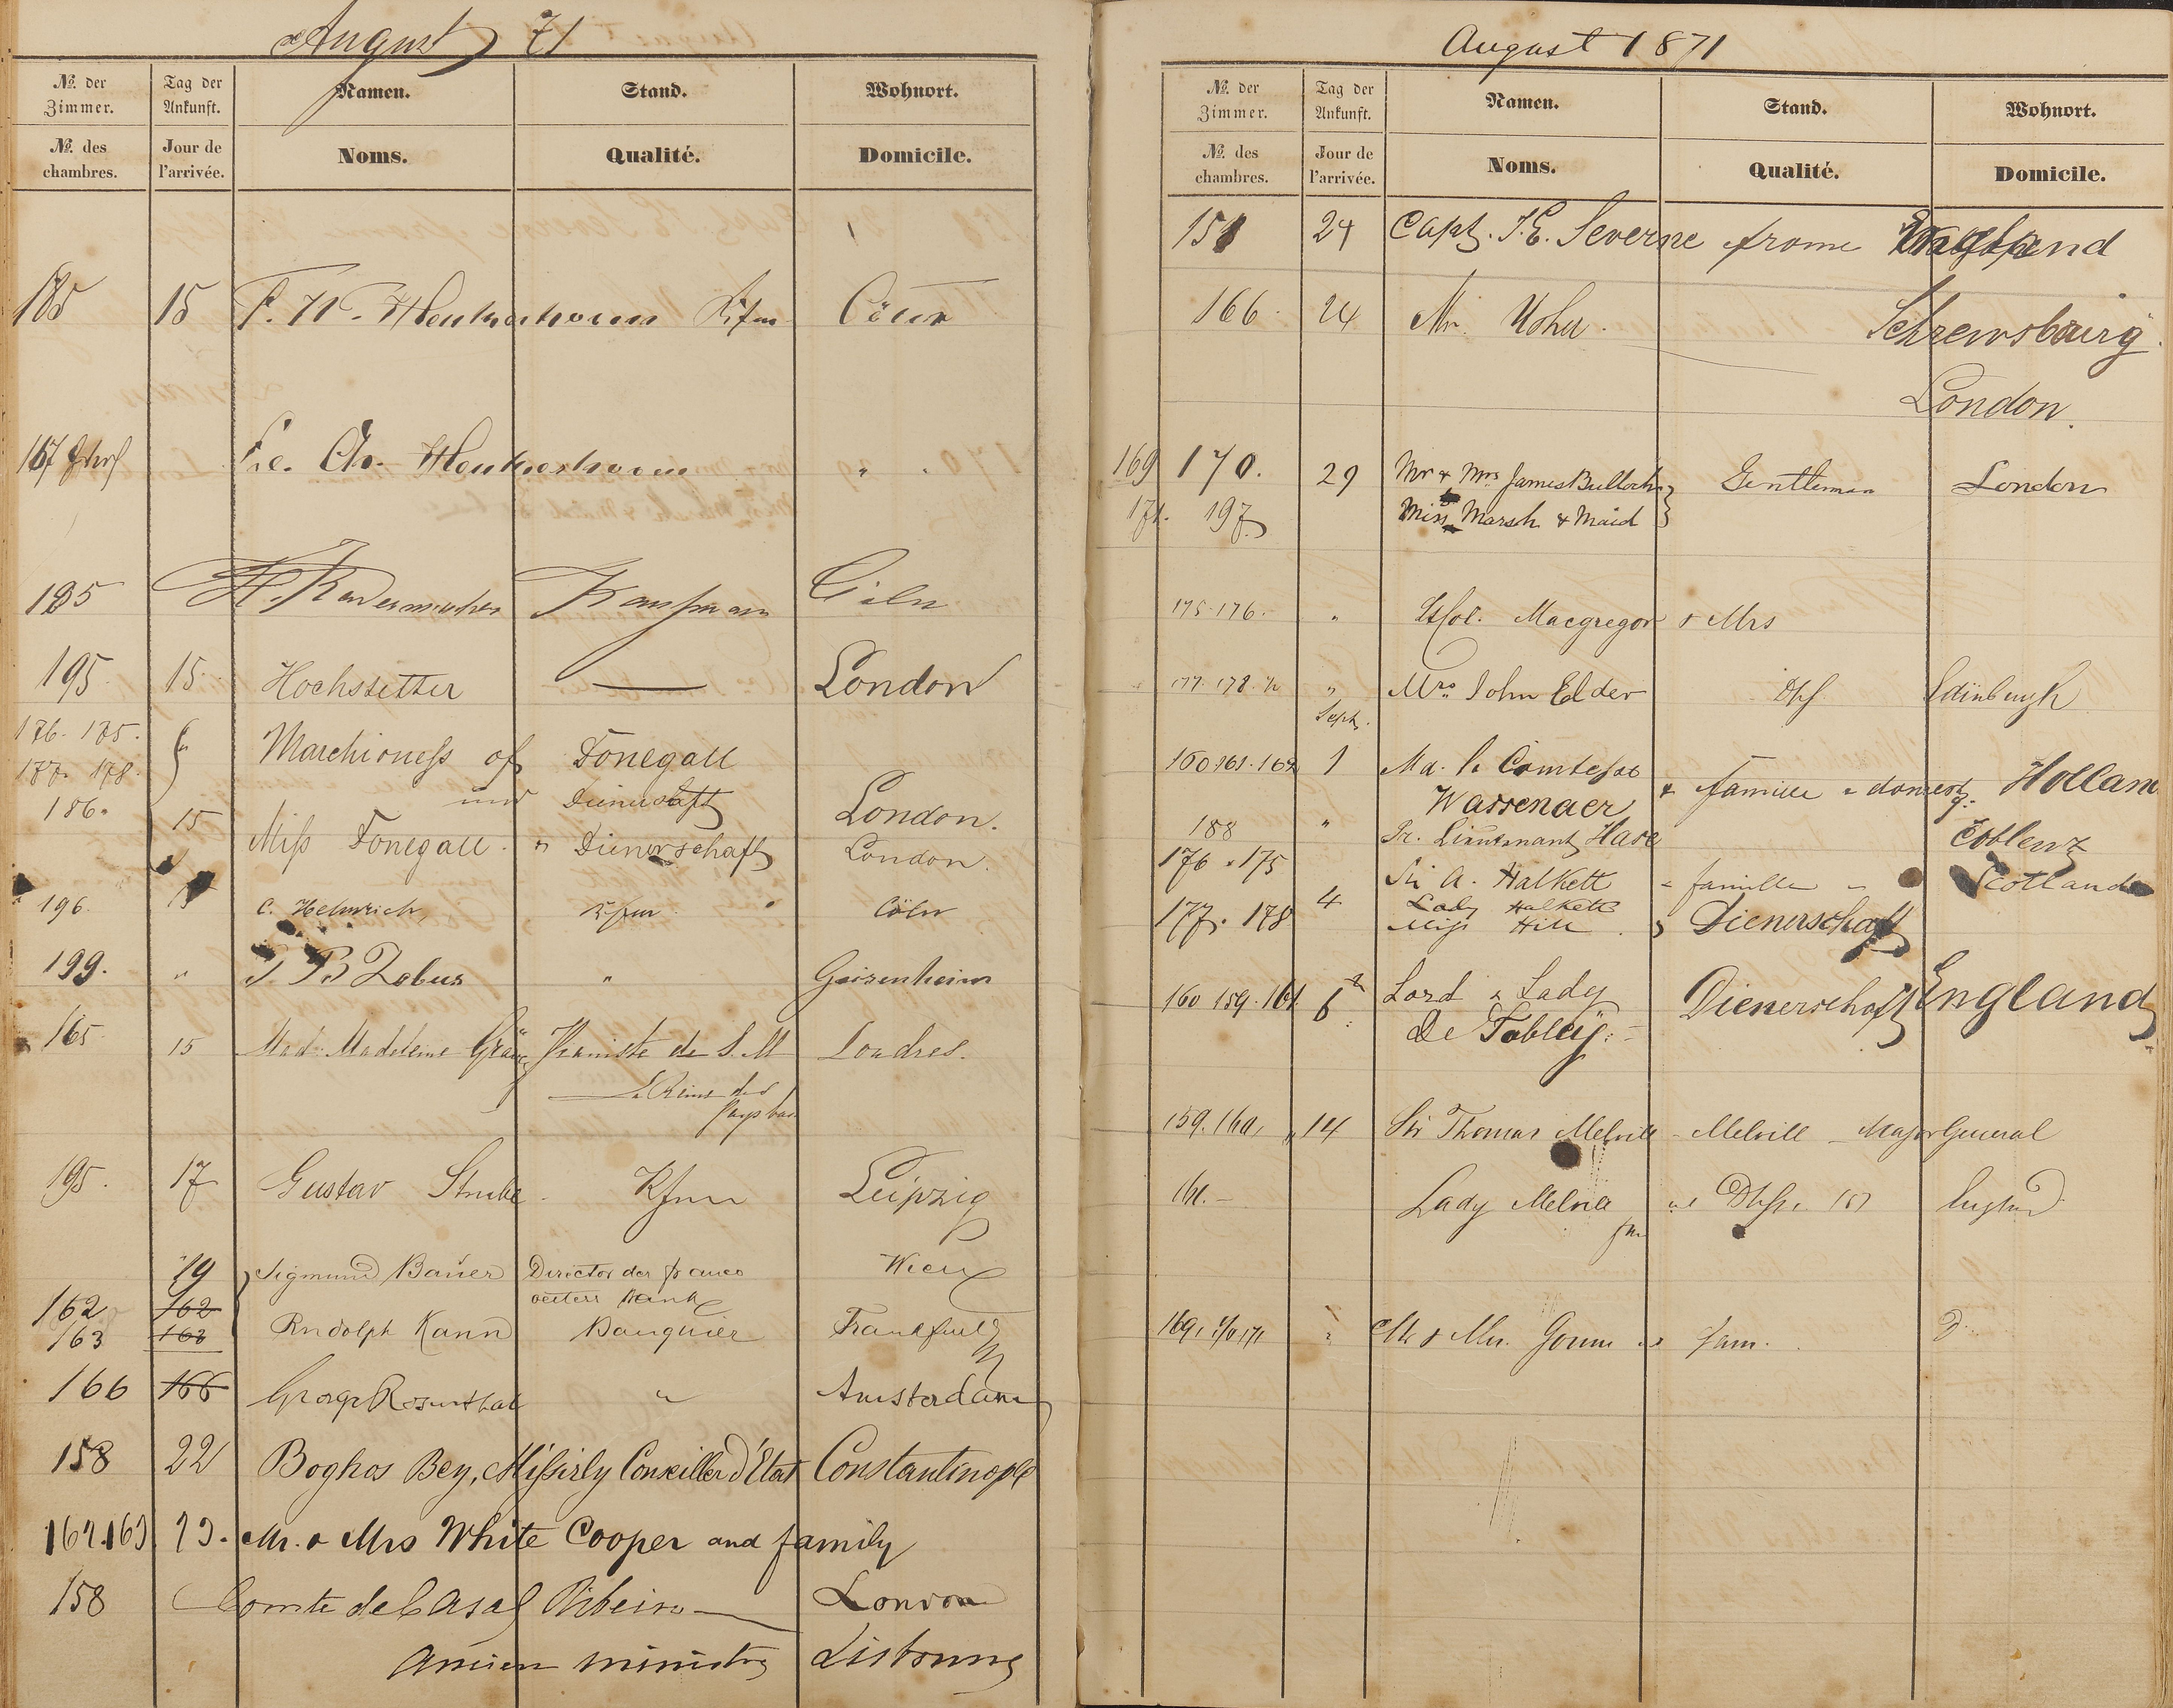 August 71
№ der Zimmer. Tag der Ankunft. Namen. Stand. Wohnort.
№ des chambres. Jour de l'arrivée. Noms. Qualité. Domicile.
15 F. W. Kfm Cöln
167
H. Kaufmann Cöln
195 15 Hochstetter — London
176. 175.
177. 178. Marchioness of Donegall
186. und Dienerschaft London.
15 Miss Donegall u Dienerschaft London.
196. 15 C. Helmrich, Kfm Cöln
199. " " Geisenheim
165 15 Mad. Madeleine Pianiste de S. M. Londres.
La Reine des
Pays bas
195. 17 Gustav Strube Kfm Leipzig
19 Sigmund Bauer Director der franco Wien
162 162 oesterr Bank
163 163 Rudolph Kann Banquier Frankfurt
166 166 George Rosenthal " Amsterdam
158 22 Boghos Bey, Missirly Conseiller d'Etat Constantinople
162.163 23. Mr. & Mrs White Cooper and family
158 Comte de Casal Ribeiro London
Ancien ministre Lisbonne
August 1871
№ der Zimmer. Tag der Ankunft. Namen. Stand. Wohnort.
№ des chambres. Jour de l'arrivée. Noms. Qualité. Domicile.
158 24 Capt. J. E. Severne frome England
166. 24 Mr. Schrewsburg.
London.
169 170. 29 Mr & Mrs James Bulloch Gentleman London
171. 197. Miss Marsh & Maid
175-176. " Col. Macgregor & Mrs
177. 178. " Mrs. John Elder Edinburgh
Sept.
160 161. 162 1 Ma. la Comtesse
Wassenaer & famille & domest. Holland
188 " Pr. Lieutenant Hase Coblenz
176 . 175 Sir A. Halkett famille Scotland
177. 178 4 Lady Halkett
Miss Hill Dienerschaft
160 159. 161 6 Lord & Lady Dienerschaft England
De Tabley.
159. 160, 14 Sir Thomas Melvill Melvill Major General
161. Lady Melvill England
169, 170 171 " Mr & Mrs. fam.